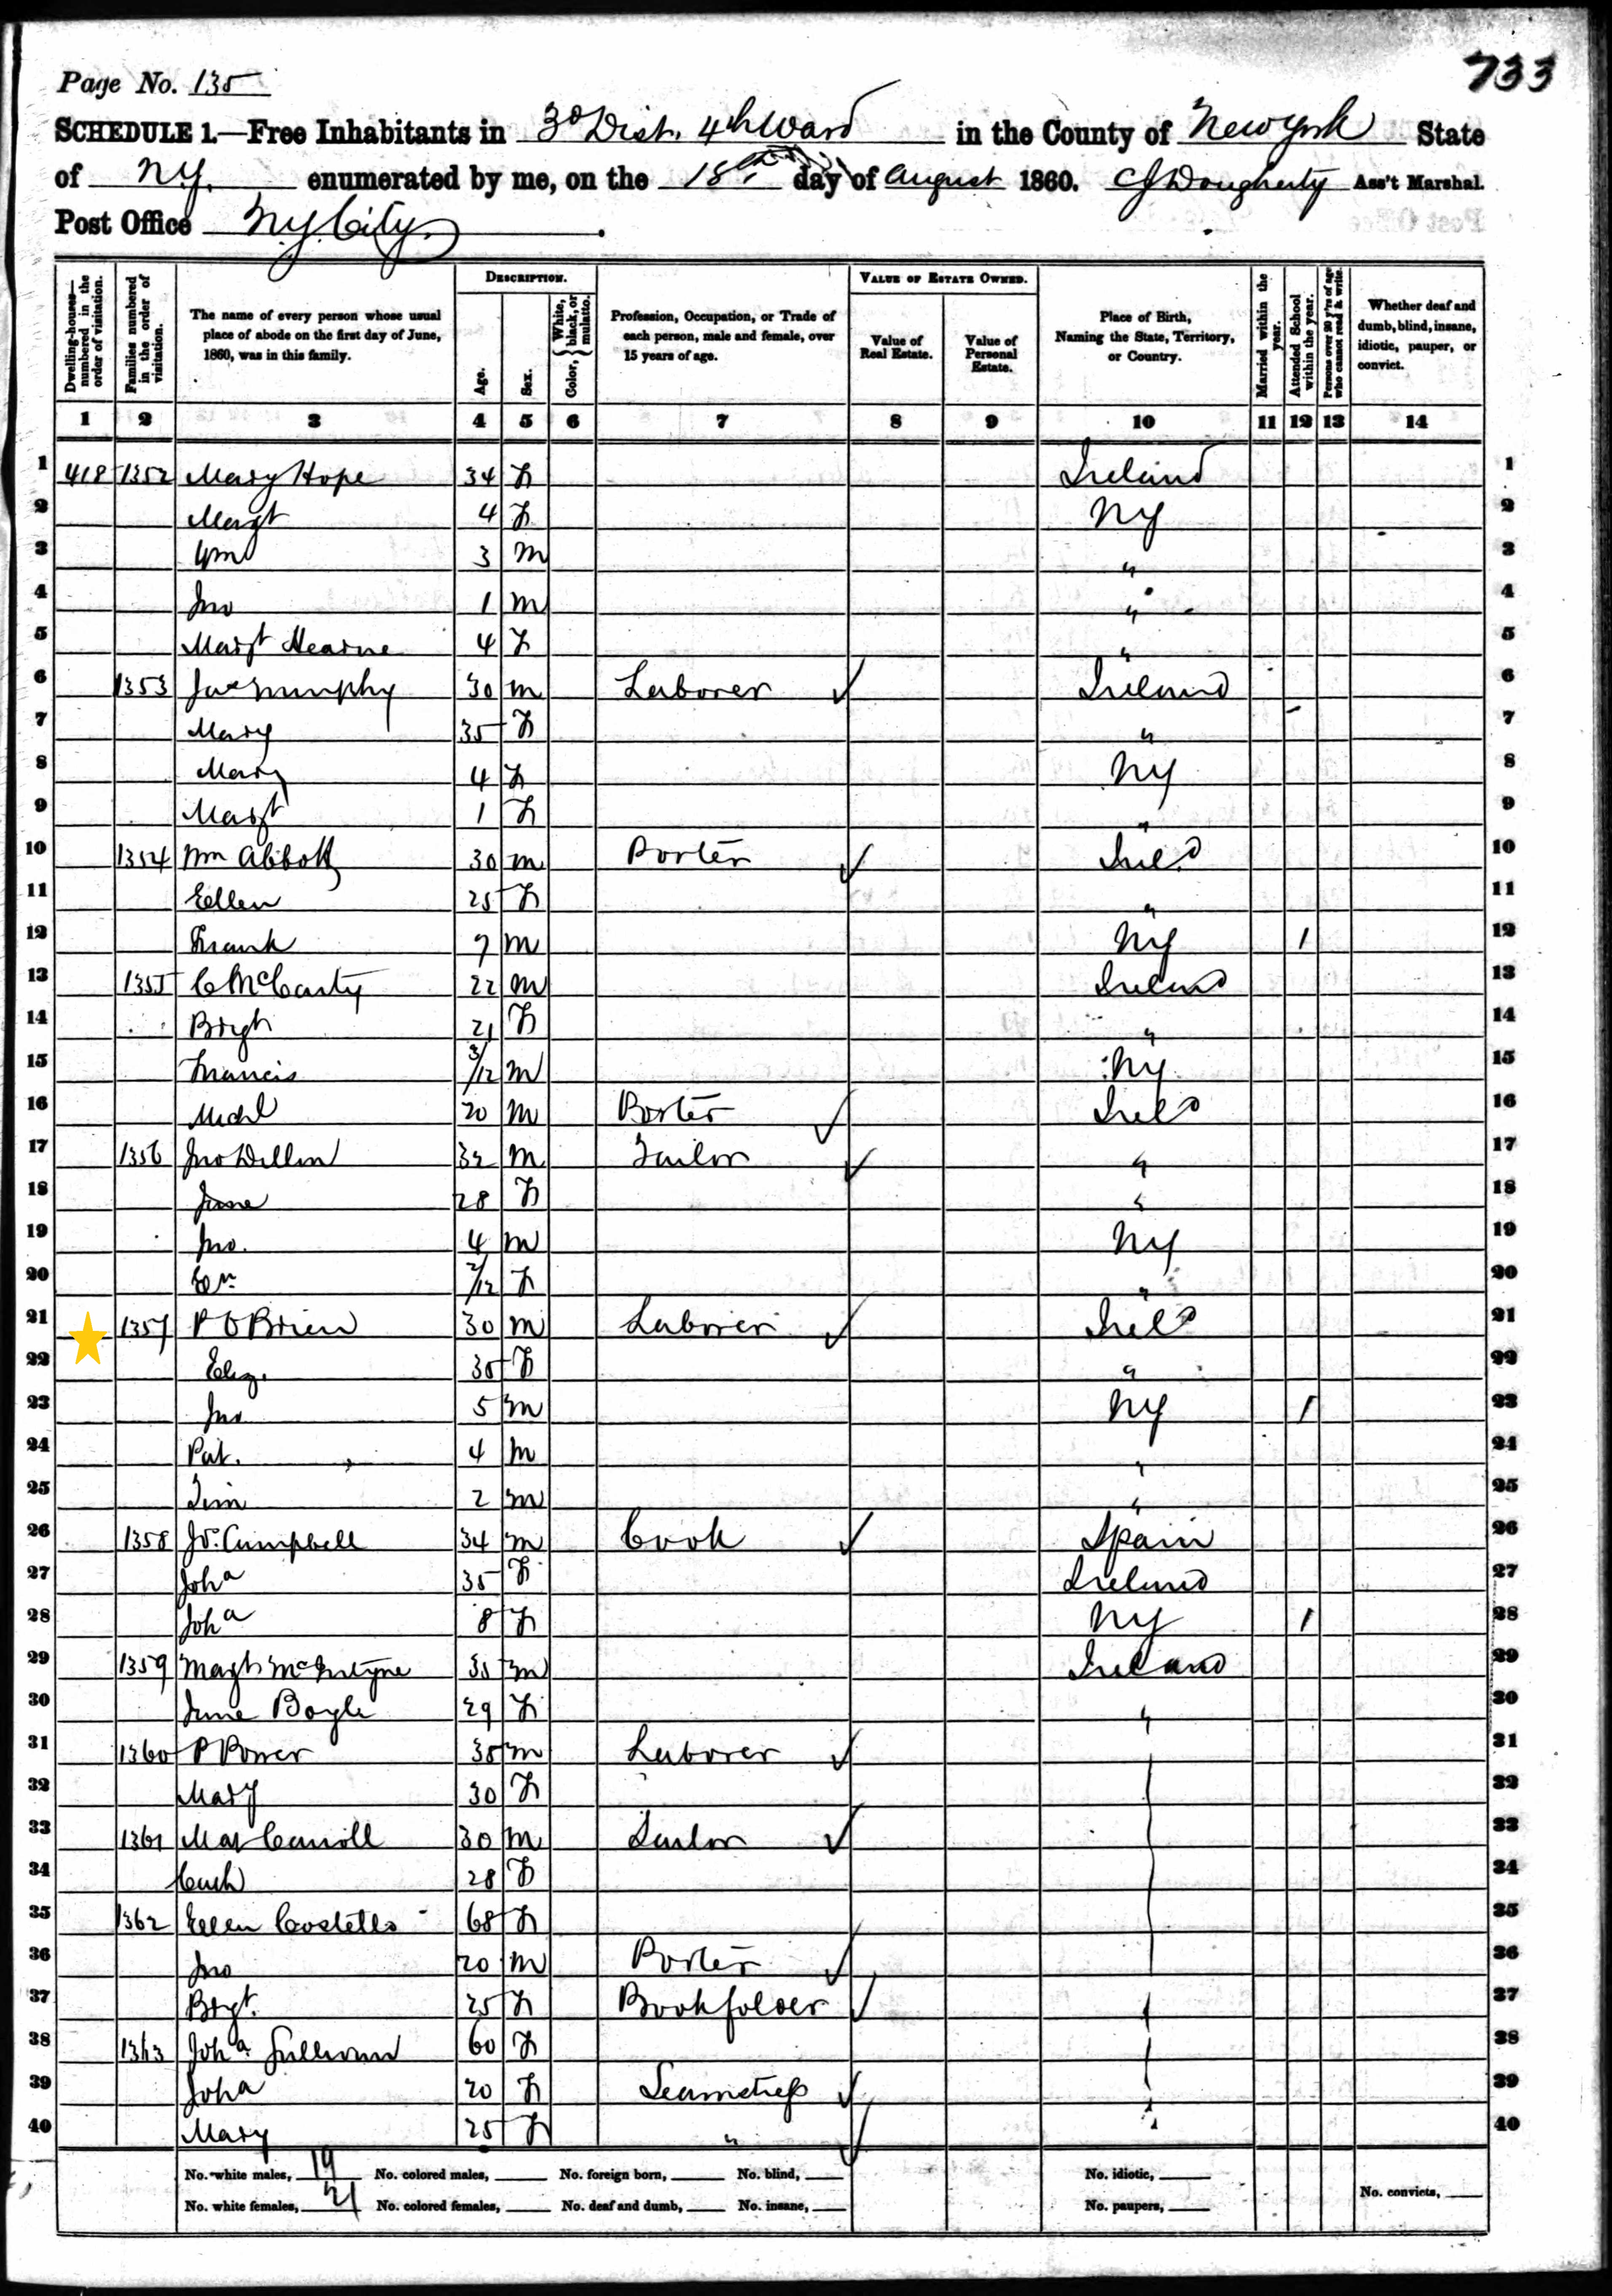 733
Page No. 135
SCHEDULE 1.—Free Inhabitants in 3d Dist. 4th Ward in the County of New York State
of N.Y. enumerated by me, on the 18th day of August 1860. CJ Dougherty Ass't Marshal.
Post Office N.Y. City.
Dwelling-houses—numbered in the order of visitation.
Families numbered in the order of visitation.
The name of every person whose usual place of abode on the first day of June, 1860, was in this family.
DESCRIPTION.
Age.
Sex.
Color, { White, black, or mulatto.
Profession, Occupation, or Trade of each person, male and female, over 15 years of age.
VALUE OF ESTATE OWNED.
Value of Real Estate.
Value of Personal Estate.
Place of Birth, Naming the State, Territory, or Country.
Married within the year.
Attended School within the year.
Persons over 20 y'rs of age who cannot read & write.
Whether deaf and dumb, blind, insane, idiotic, pauper, or convict.
1 2 3 4 5 6 7 8 9 10 11 12 13 14
1 418 1352 Mary Hope 34 F Ireland 1
2 Margt 4 F NY 2
3 Wm 3 m " 3
4 Jno 1 m " 4
5 Margt Hearne 4 F " 5
6 1353 Jas Murphy 30 m Laborer Ireland 6
7 Mary 35 F " 7
8 Mary 4 F NY 8
9 Margt 1 F " 9
10 1354 Wm Abbott 30 m Porter Ireld 10
11 Ellen 25 F " 11
12 Frank 7 m NY 1 12
13 1355 C McCarty 22 m Ireland 13
14 Brigt 21 F " 14
15 Francis 3/12 m NY 15
16 Michl 20 m Porter Ireld 16
17 1356 Jno Dillon 32 m Tailor " 17
18 Jane 28 F " 18
19 Jno. 4 m NY 19
20 2/12 F " 20
21 1357 P O Brien 30 m Laborer Ireld 21
22 Eliz. 35 F " 22
23 Jno 5 m NY 1 23
24 Pat. 4 m " 24
25 Tim 2 m " 25
26 1358 Campbell 34 m Cook Spain 26
27 Joha 35 F Ireland 27
28 Joha 8 F NY 1 28
29 1359 Magt McIntyre 35 m Ireland 29
30 Jane Boyle 29 F " 30
31 1360 P Power 35 m Laborer 31
32 Mary 30 F 32
33 1361 Carroll 30 m 33
34 Cath 28 F 34
35 1362 Ellen Costello 68 F 35
36 Jno 20 m Porter 36
37 Brgt. 25 F Bookfolder 37
38 1363 Joha Sullivan 60 F 38
39 Joha 20 F Seamstress 39
40 Mary 25 F " 40
No. white males, 19 No. colored males, No. foreign born, No. blind, No. idiotic,
No. white females, 21 No. colored females, No. deaf and dumb, No. insane, No. paupers, No. convicts,